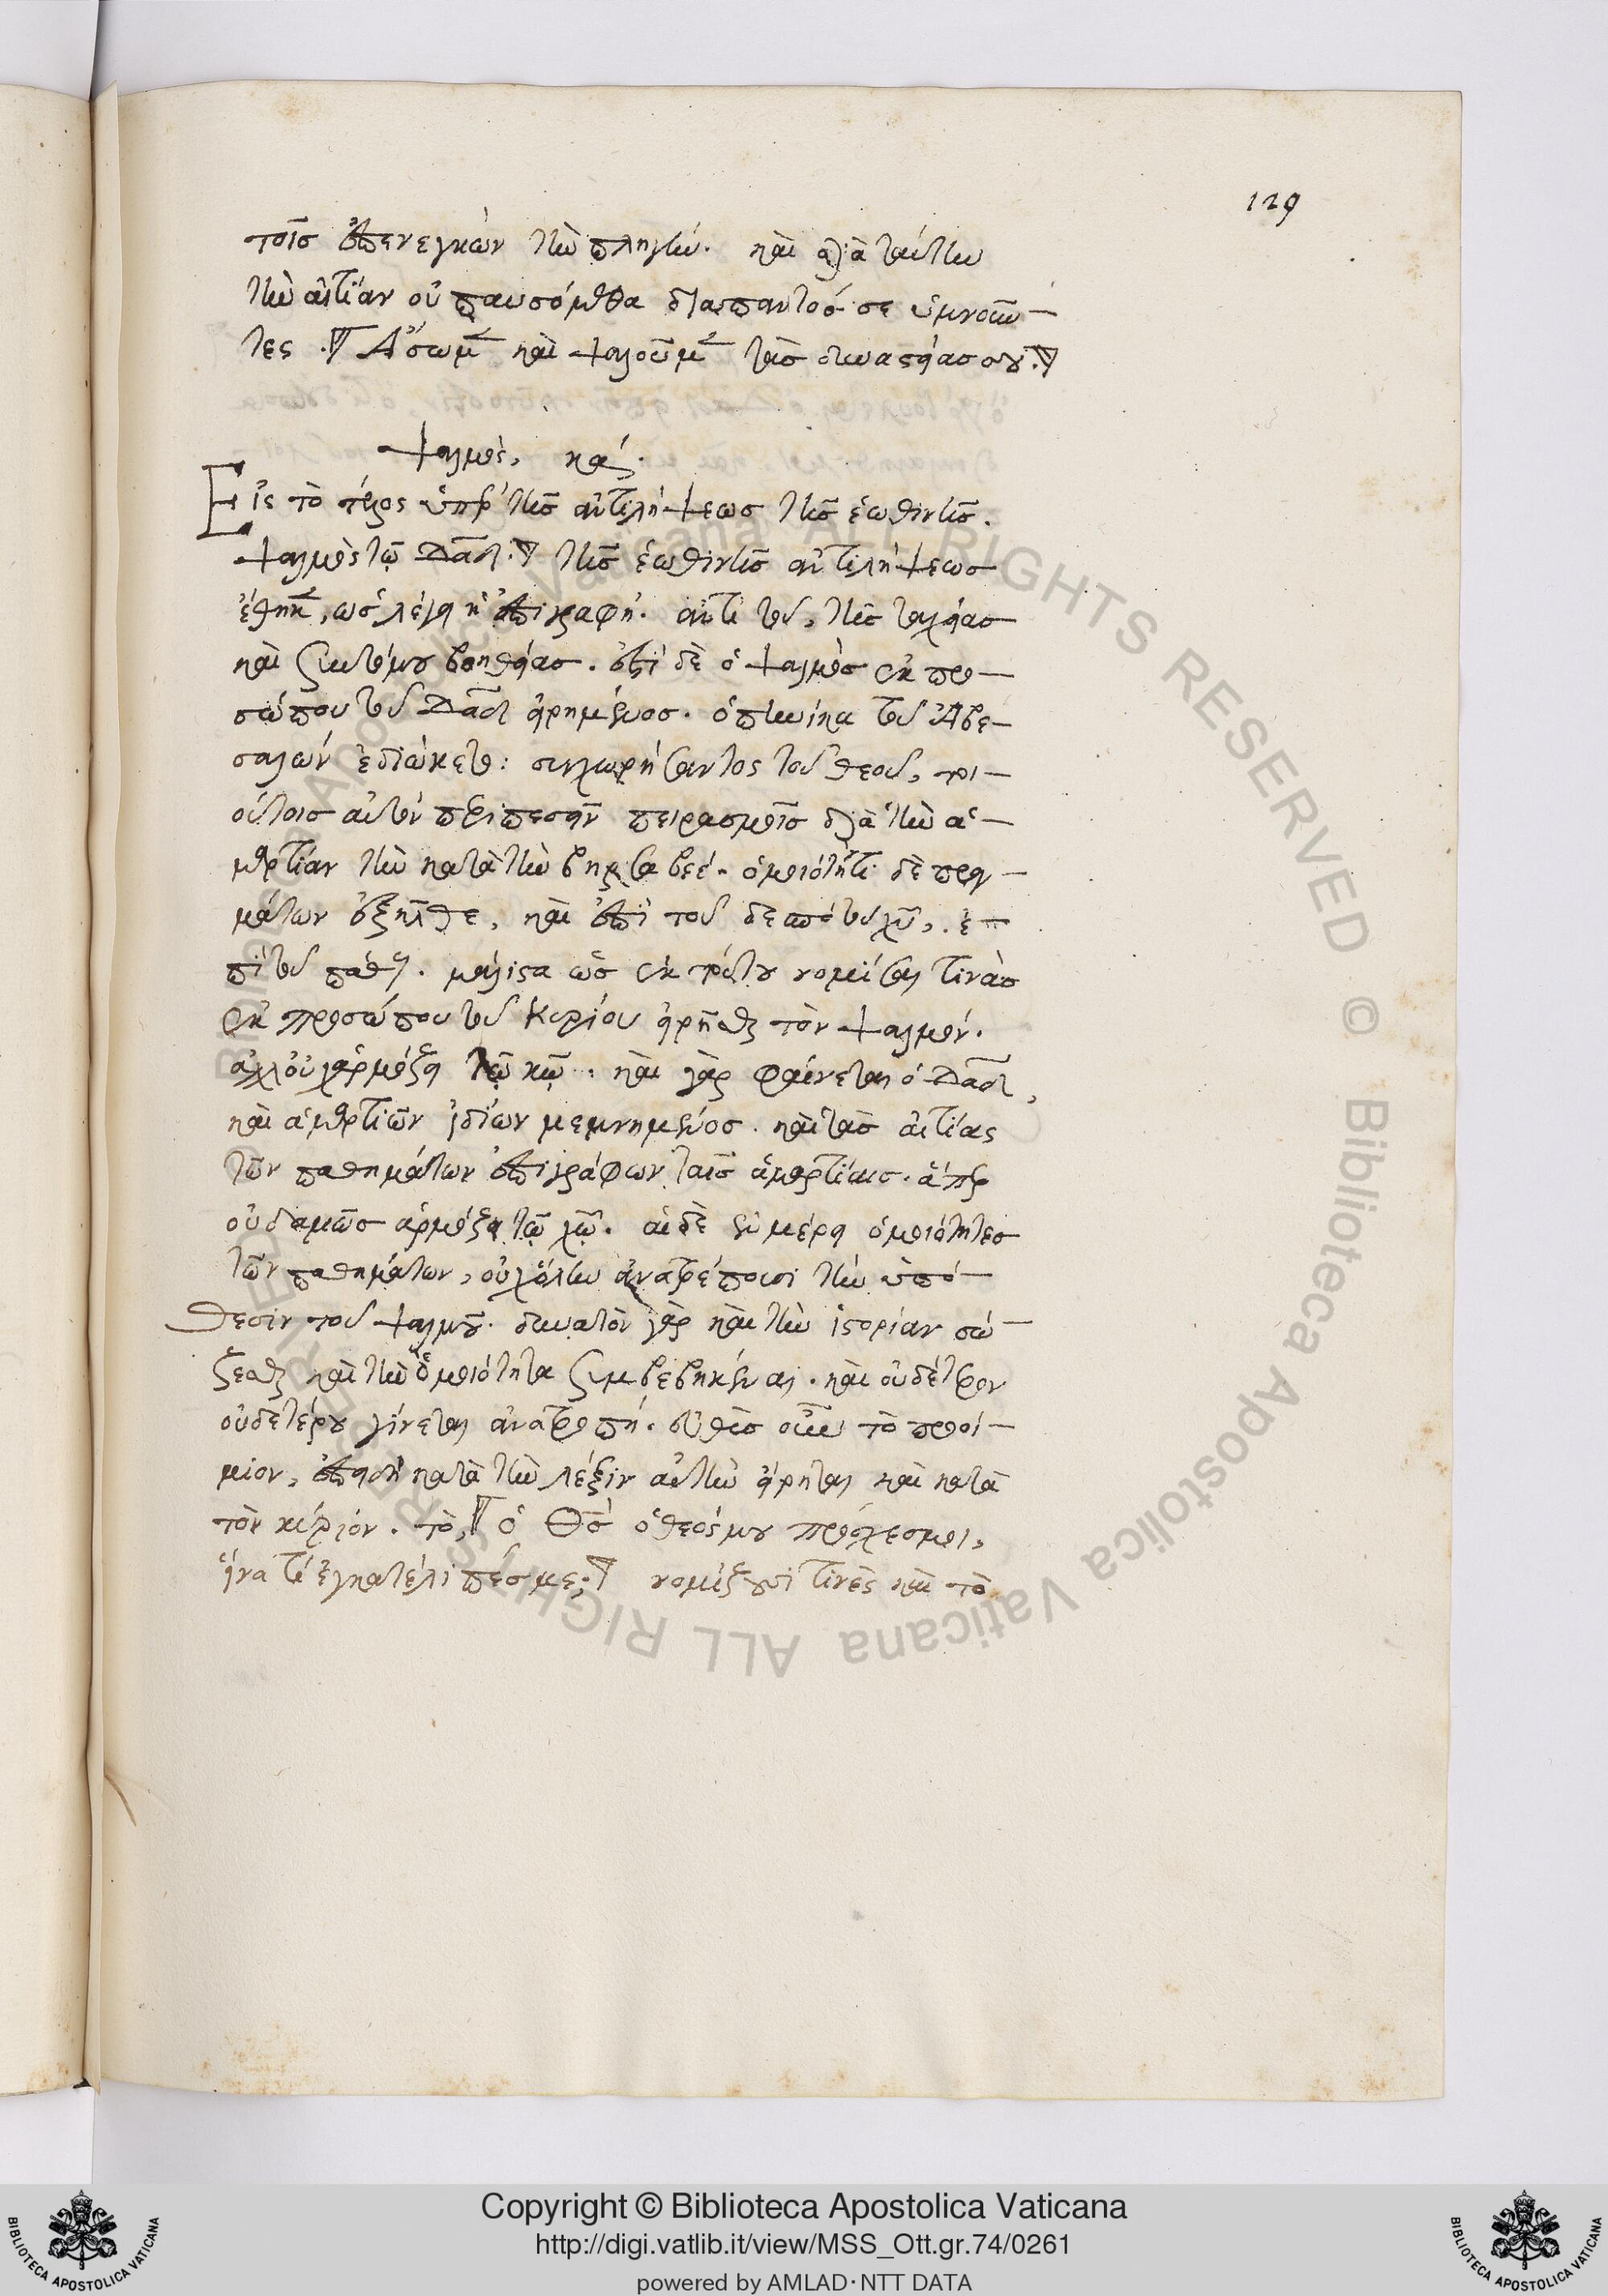 129
τοῖσ ἐπενεγκὼν τὴν πληγὴν. καὶ διὰ ταύτην
τὴν αἰτίαν οὐ παυσόμεθα διαπαντόσ σε ὑμνοῦν-
τες. Ἄσωμεν καὶ ψαλοῦμεν τὰσ δυναστείασ σου.
Ψαλμὸς, κα΄.
Εἰς τὸ τέλος ὑπὲρ τῆσ ἀντιλήψεωσ τῆσ ἑωθινῆσ.
ψαλμὸς τῷ Δαδ. τῆσ ἑωθινῆσ ἀντιλήψεωσ
ἐθηκεν, ὡσ λέγει ἡ ἐπιγραφή. ἀντὶ τοῦ, τῆσ ταχείασ
καὶ συντόμου βοηθείασ. ἐστὶ δὲ ὁ ψαλμὸσ ἐκ προ-
σώπου τοῦ Δαδ εἰρημένοσ. ὁπηνίκα τοῦ Ἀβε-
σαλὼν ἐδιώκετο: συγχωρήσαντος τοῦ θεοῦ, τοι-
ούτοισ αὐτὸν περιπεσεῖν πειρασμοῖσ διὰ τὴν ἁ-
μαρτίαν τὴν κατὰ τὴν βηρσαβεέ. ὁμοιότητι δὲ πραγ-
μάτων ἐξῆλθε, καὶ ἐπὶ τοῦ δεσπότου χυ, ἐ-
πὶ τοῦ πάθει. μάλιστα ὡσ ἐκ τούτου νομίσαι τινὰσ
ἐκ προσώπου τοῦ Κυρίου εἰρῆσθαι τὸν ψαλμόν.
ἀλλ' οὐχ ἁρμόξει τῷ κω. καὶ γὰρ φαίνεται ὁ Δαδ,
καὶ ἁμαρτιῶν ἰδίων μεμνημένοσ. καὶ τὰσ αἰτίας
τῶν παθημάτων ἐπιγράφων ταῖσ ἁμαρτίαισ. ἅπερ
οὐδαμῶσ ἁρμόξει τῷ χω. αἱ δὲ ἐν μέρει ὁμοιότητεσ
τῶν παθημάτων, οὐχ ὅλην ἀνατρέπουσι τὴν ὑπό-
θεσιν τοῦ ψαλμοῦ. δυνατὸν γὰρ καὶ τὴν ἱστορίαν σώ-
ζεσθαι καὶ τὴν ὁμοιότητα συμβεβηκέναι. καὶ οὐδέτερον
οὐδετέρου γίνεται ἀνατροπή. εὐθὺσ οὖν τὸ προοί-
μιον, ἐπειδὴ κατὰ τὴν λέξιν αὐτὴν εἴρηται καὶ κατὰ
τὸν κύριον. τὸ, ὁ Θσ ὁ θεόσ μου πρόσχεσ μοι,
ἵνα τί ἐγκατέλιπέσ με; νομίζουσί τινὲς καὶ τὸ
Copyright © Biblioteca Apostolica Vaticana
http://digi.vatlib.it/view/MSS_Ott.gr.74/0261
powered by AMLAD·NTT DATA